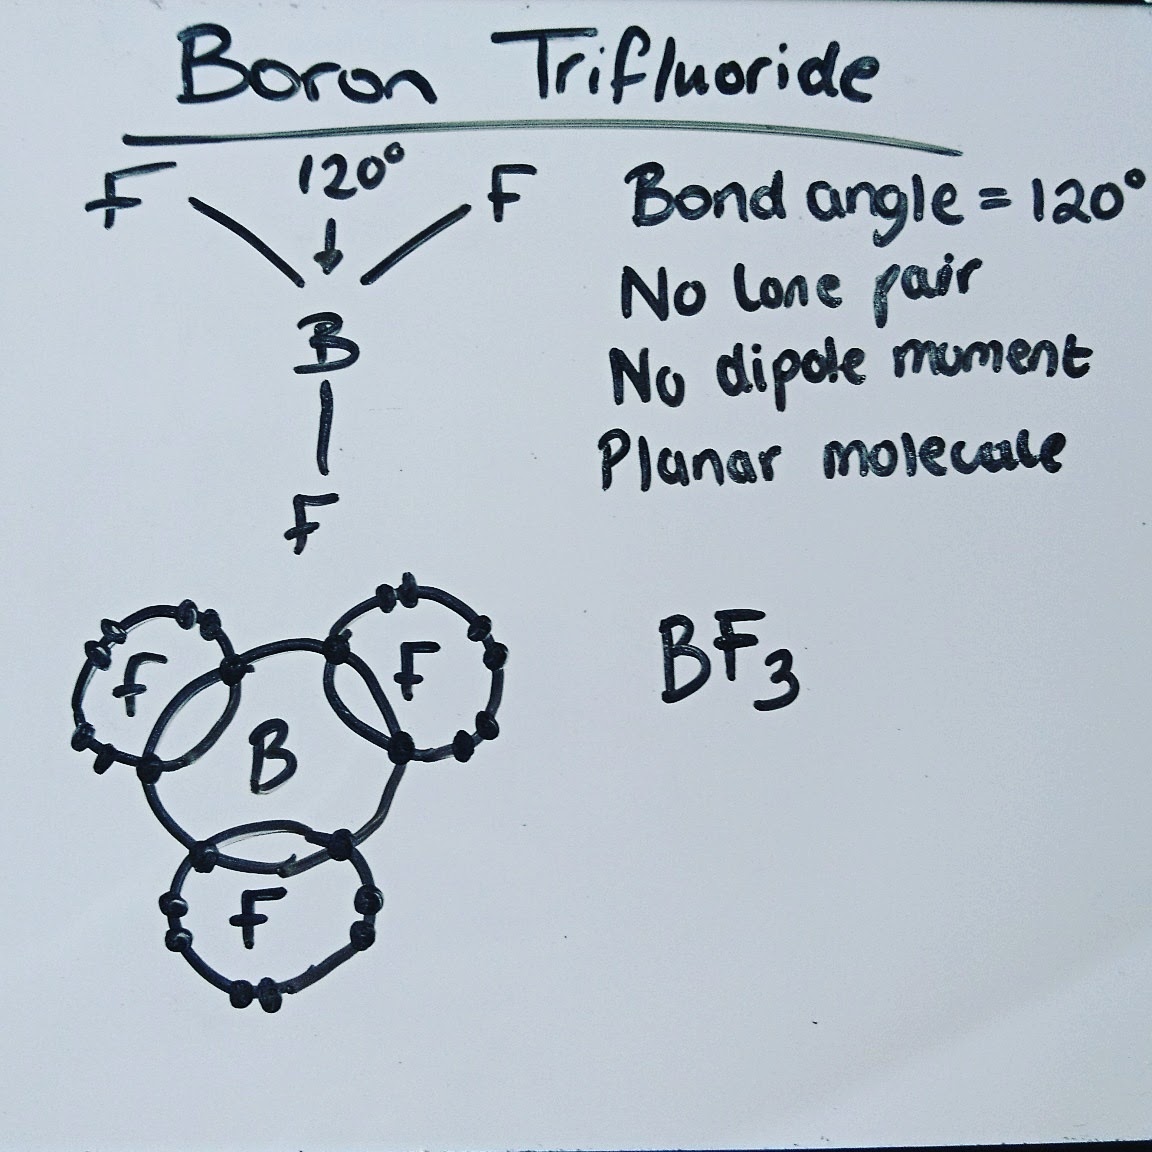 Boron Trifluoride
F 120° F
B
F
Bond angle = 120°
No lone pair
No dipole moment
Planar molecule
F F
B
F
BF₃